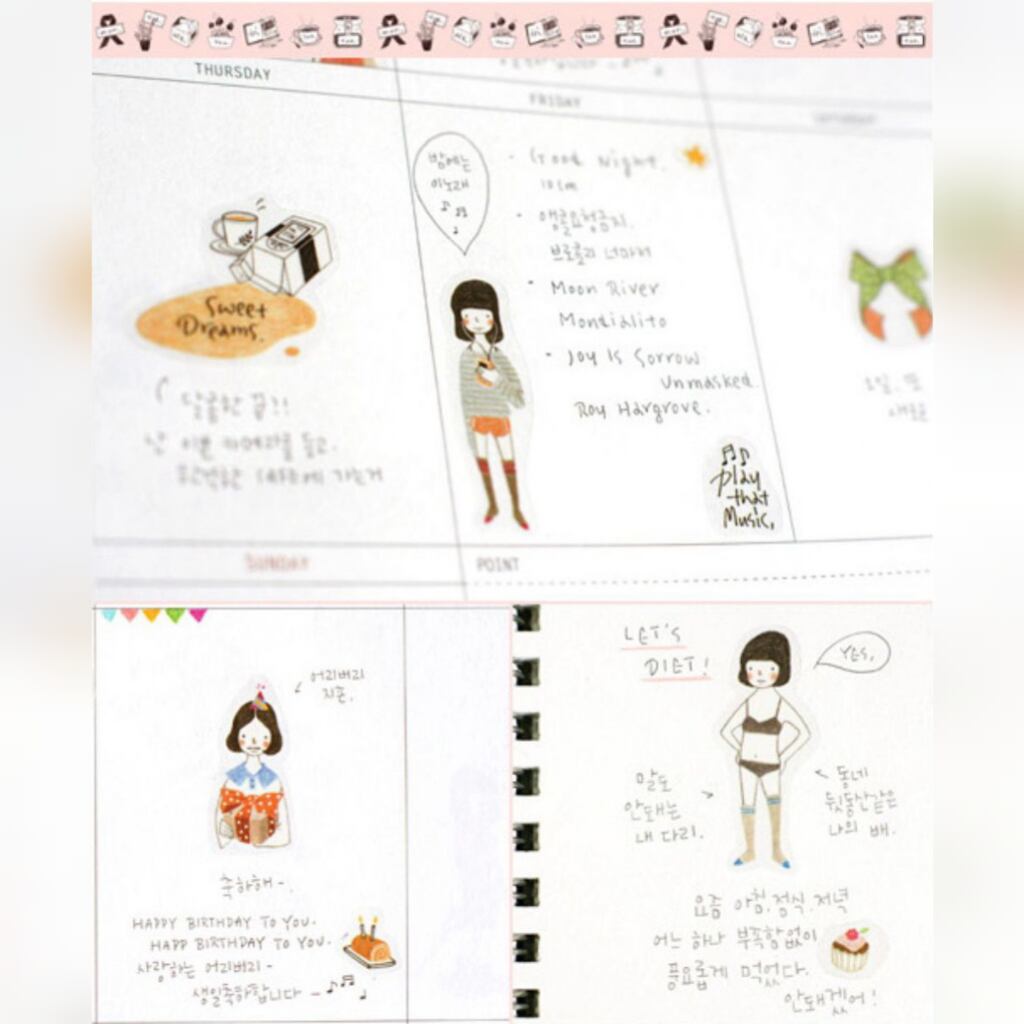 THURSDAY
FRIDAY
SATURDAY
Sweet
Dreams.
달콤한 꿈!!
밤에는
이노래
Good Night.
10cm
앵콜요청금지.
브로콜리 너마저
Moon River
Mondialito
Joy Is Sorrow
Unmasked
Roy Hargrove.
Play
that
Music,
SUNDAY
POINT
어리버리
지존.
축하해-.
HAPPY BIRTHDAY TO YOU.
HAPP BIRTHDAY TO YOU.
사랑하는 어리버리-
생일축하합니다-
LET'S
DIET!
YES,
말도
안돼는
내 다리.
동네
뒷동산같은
나의 배.
요즘 아침.점식.저녁
어느 하나 부족함없이
풍요롭게 먹었다.
안돼겠어!